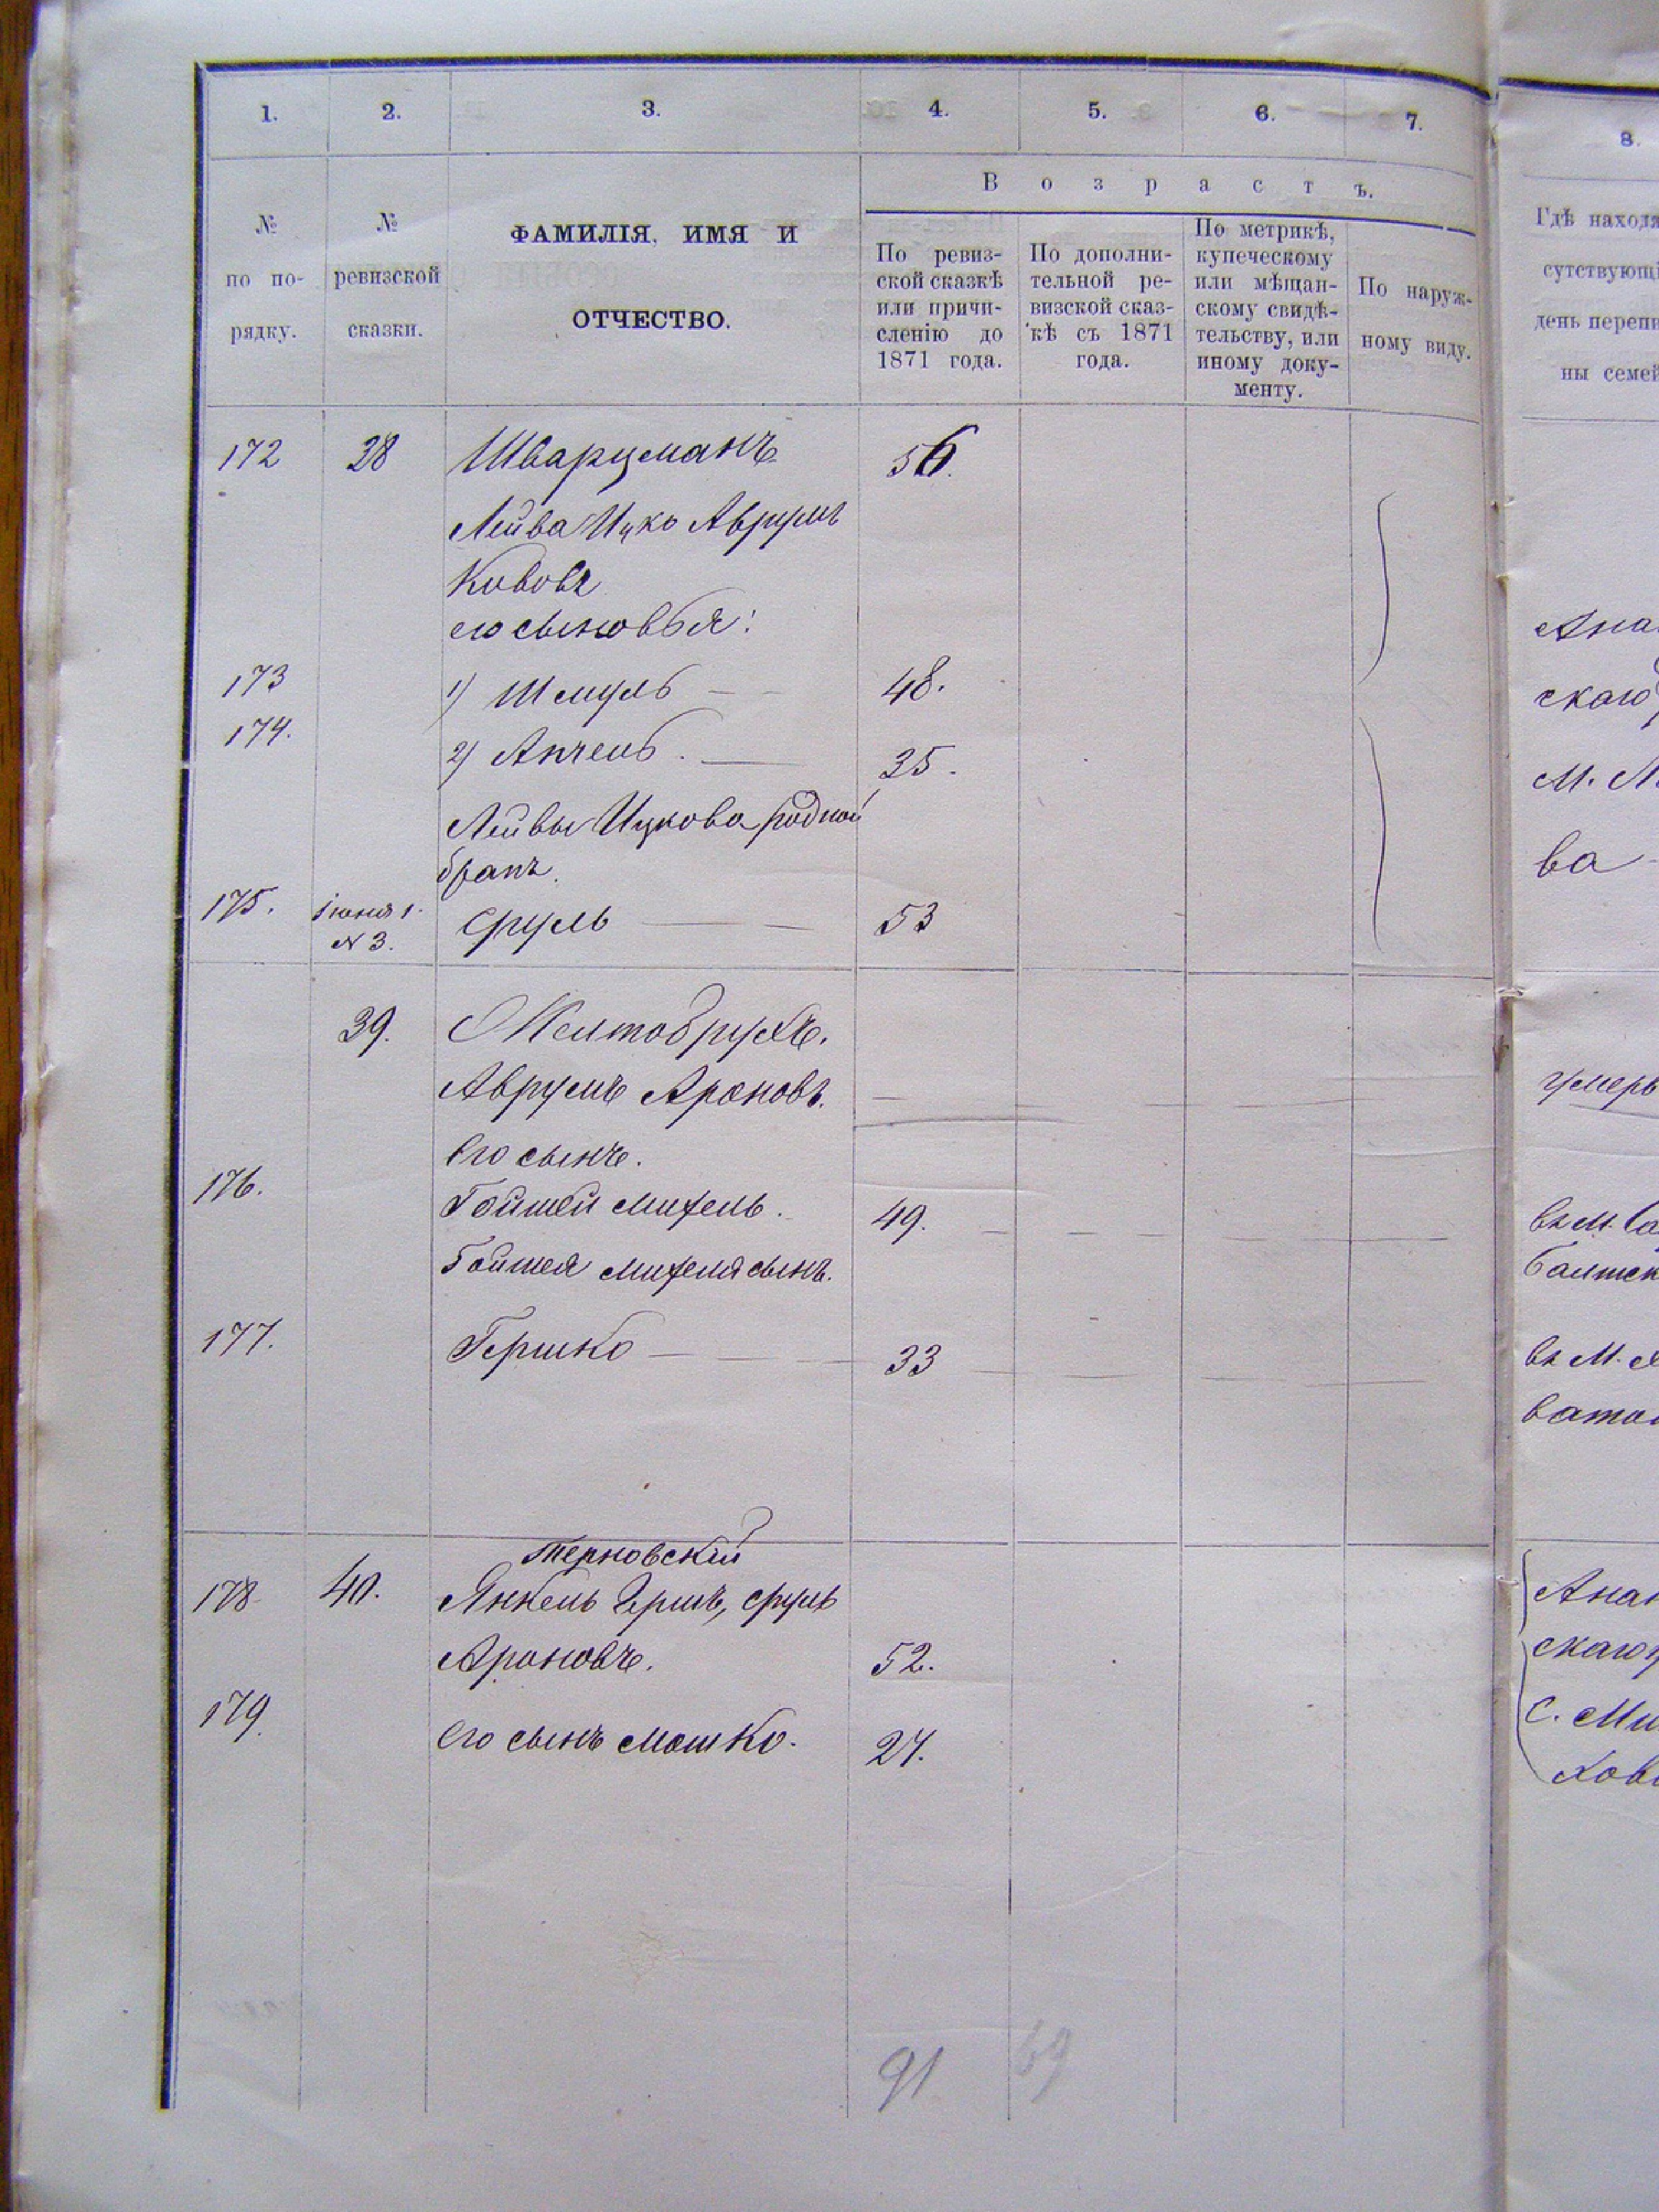 1. 2. 3. 4. 5. 6. 7. 8.
№ по по-рядку.
№ ревизской сказки.
ФАМИЛІЯ, ИМЯ И ОТЧЕСТВО.
Возрастъ.
По ревиз-
ской сказкѣ
или причи-
сленію до
1871 года.
По дополни-
тельной ре-
визской сказ-
кѣ съ 1871
года.
По метрикѣ,
купеческому
или мѣщан-
скому свидѣ-
тельству, или
иному доку-
менту.
По наруж-
ному виду.
Гдѣ находя
сутствующі
день перепи
ны семей
172 38 Шварцманъ 56.
Лейва Ицко Аврумъ
его сыновья:
173 1) Шмуль 48.
174. 2) Анчель. 35.
Лейвы Ицкова родной
братъ.
175. Іюня 1. № 3. Сруль 53
Ана
скаго
м.
ва
39. Желтобрухъ.
Аврумъ Ароновъ. умеръ
Его сынъ.
176. Гойшей Михель. 49. въ м.
Гойшея Михеля сынъ. Балтск
177. Гершко 33 въ м.
Терновскій
178 40. Янкель Гершъ, Сруль Анан
Ароновъ. 52. скаго
179. Его сынъ Мошко. 27. с. Ми
хов
91 69